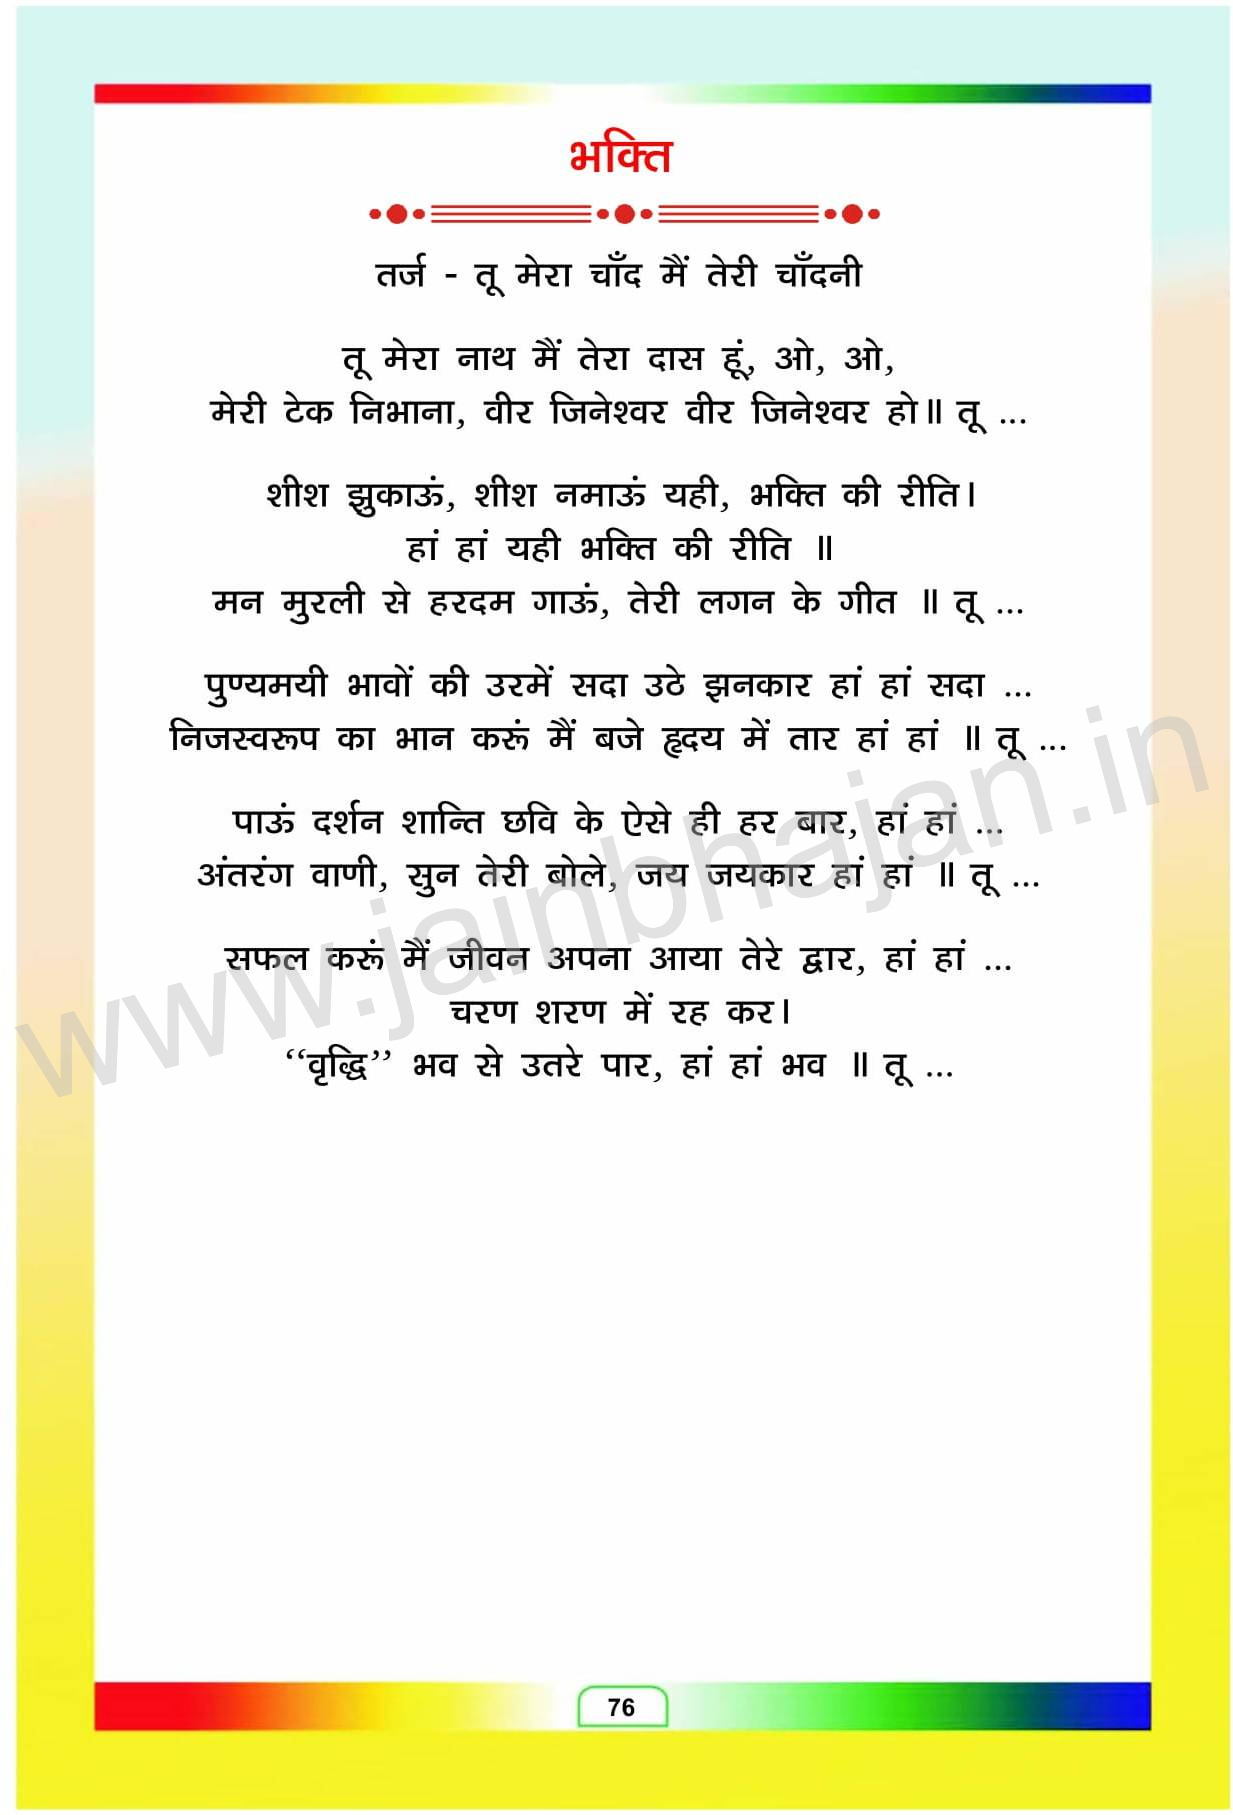 भक्ति
तर्ज - तू मेरा चाँद मैं तेरी चाँदनी
तू मेरा नाथ मैं तेरा दास हूं, ओ, ओ,
मेरी टेक निभाना, वीर जिनेश्वर वीर जिनेश्वर हो॥ तू ...
शीश झुकाऊं, शीश नमाऊं यही, भक्ति की रीति।
हां हां यही भक्ति की रीति ॥
मन मुरली से हरदम गाऊं, तेरी लगन के गीत ॥ तू ...
पुण्यमयी भावों की उरमें सदा उठे झनकार हां हां सदा ...
निजस्वरूप का भान करूं मैं बजे हृदय में तार हां हां ॥ तू ...
पाऊं दर्शन शान्ति छवि के ऐसे ही हर बार, हां हां ...
अंतरंग वाणी, सुन तेरी बोले, जय जयकार हां हां ॥ तू ...
सफल करूं मैं जीवन अपना आया तेरे द्वार, हां हां ...
चरण शरण में रह कर।
‘‘वृद्धि’’ भव से उतरे पार, हां हां भव ॥ तू ...
www.jainbhajan.in
76